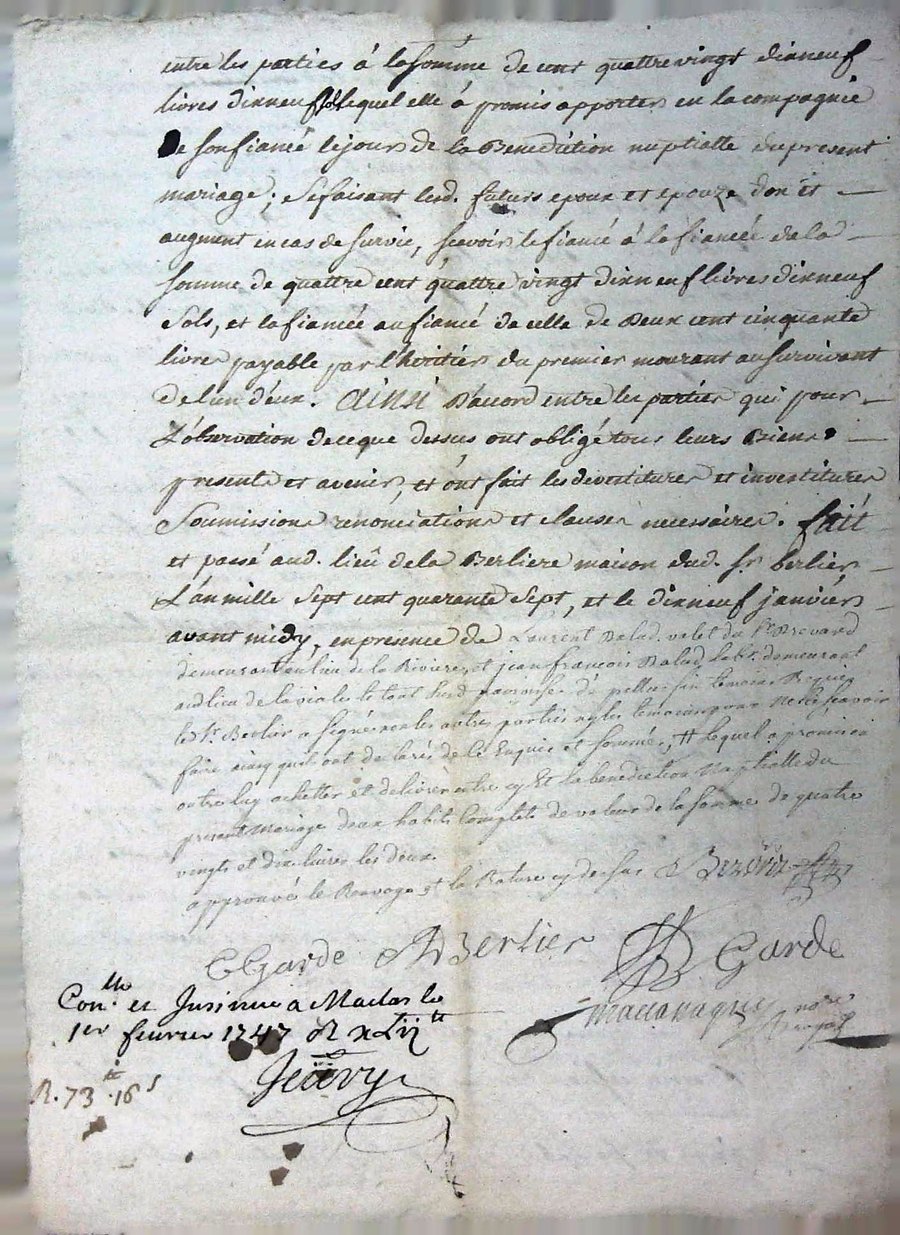 entre les parties à la somme de cent quattre vingt dixneuf
livres dixneuf sols lequel elle à promis apporter en la compagnie
de son fiancé le jour de la Benediction nuptialle du present
mariage; se faisant lesd. futurs epoux et epouze don et
augment en cas de survie, scavoir le fiancé à la fiancée de la
somme de quattre cent quattre vingt dixneuf livres dixneuf
sols, et la fiancée au fiancé de celle de Deux cent cinquante
livres payable par l'heritier du premier mourant au survivant
de l'un d'eux. Ainsi D'accord entre les parties qui pour
L'observation de ce que dessus ont obligé tous leurs Biens
presents et avenir, et ont fait les devestitures et investitures
soumissions renonciations et clauses necessaires. fait
et passé aud. lieu de la Berliere maison dud. sr berlier
L'an mille sept cent quarante sept, et le dixneuf janvier
avant midy, en presence de Laurent Dalud valet du Sr
demeurant au lieu de la Riviere, et jean françois Dalud habt. demeurant
aud lieu de la viale le tout susd parroisse de pellussin temoins Requis
le Sr Berlier a signé non les autres parties ny les temoins pour ne scavoir
faire ainsy qu'ils ont declaré de ce Enquis et sommés, # lequel a promis en
outre luy achetter et delivrer entre cy Et la benediction Nuptialle du
present Mariage deux habits Complets de valeur de la somme de quatre
vingts et dix livres les deux.
approuvé le Renvoye et la Rature cy dessus
Garde Berlier Garde
Conlle. et Insinué a Maclas le
1er fevrier 1747
R. 73 tt 16 s